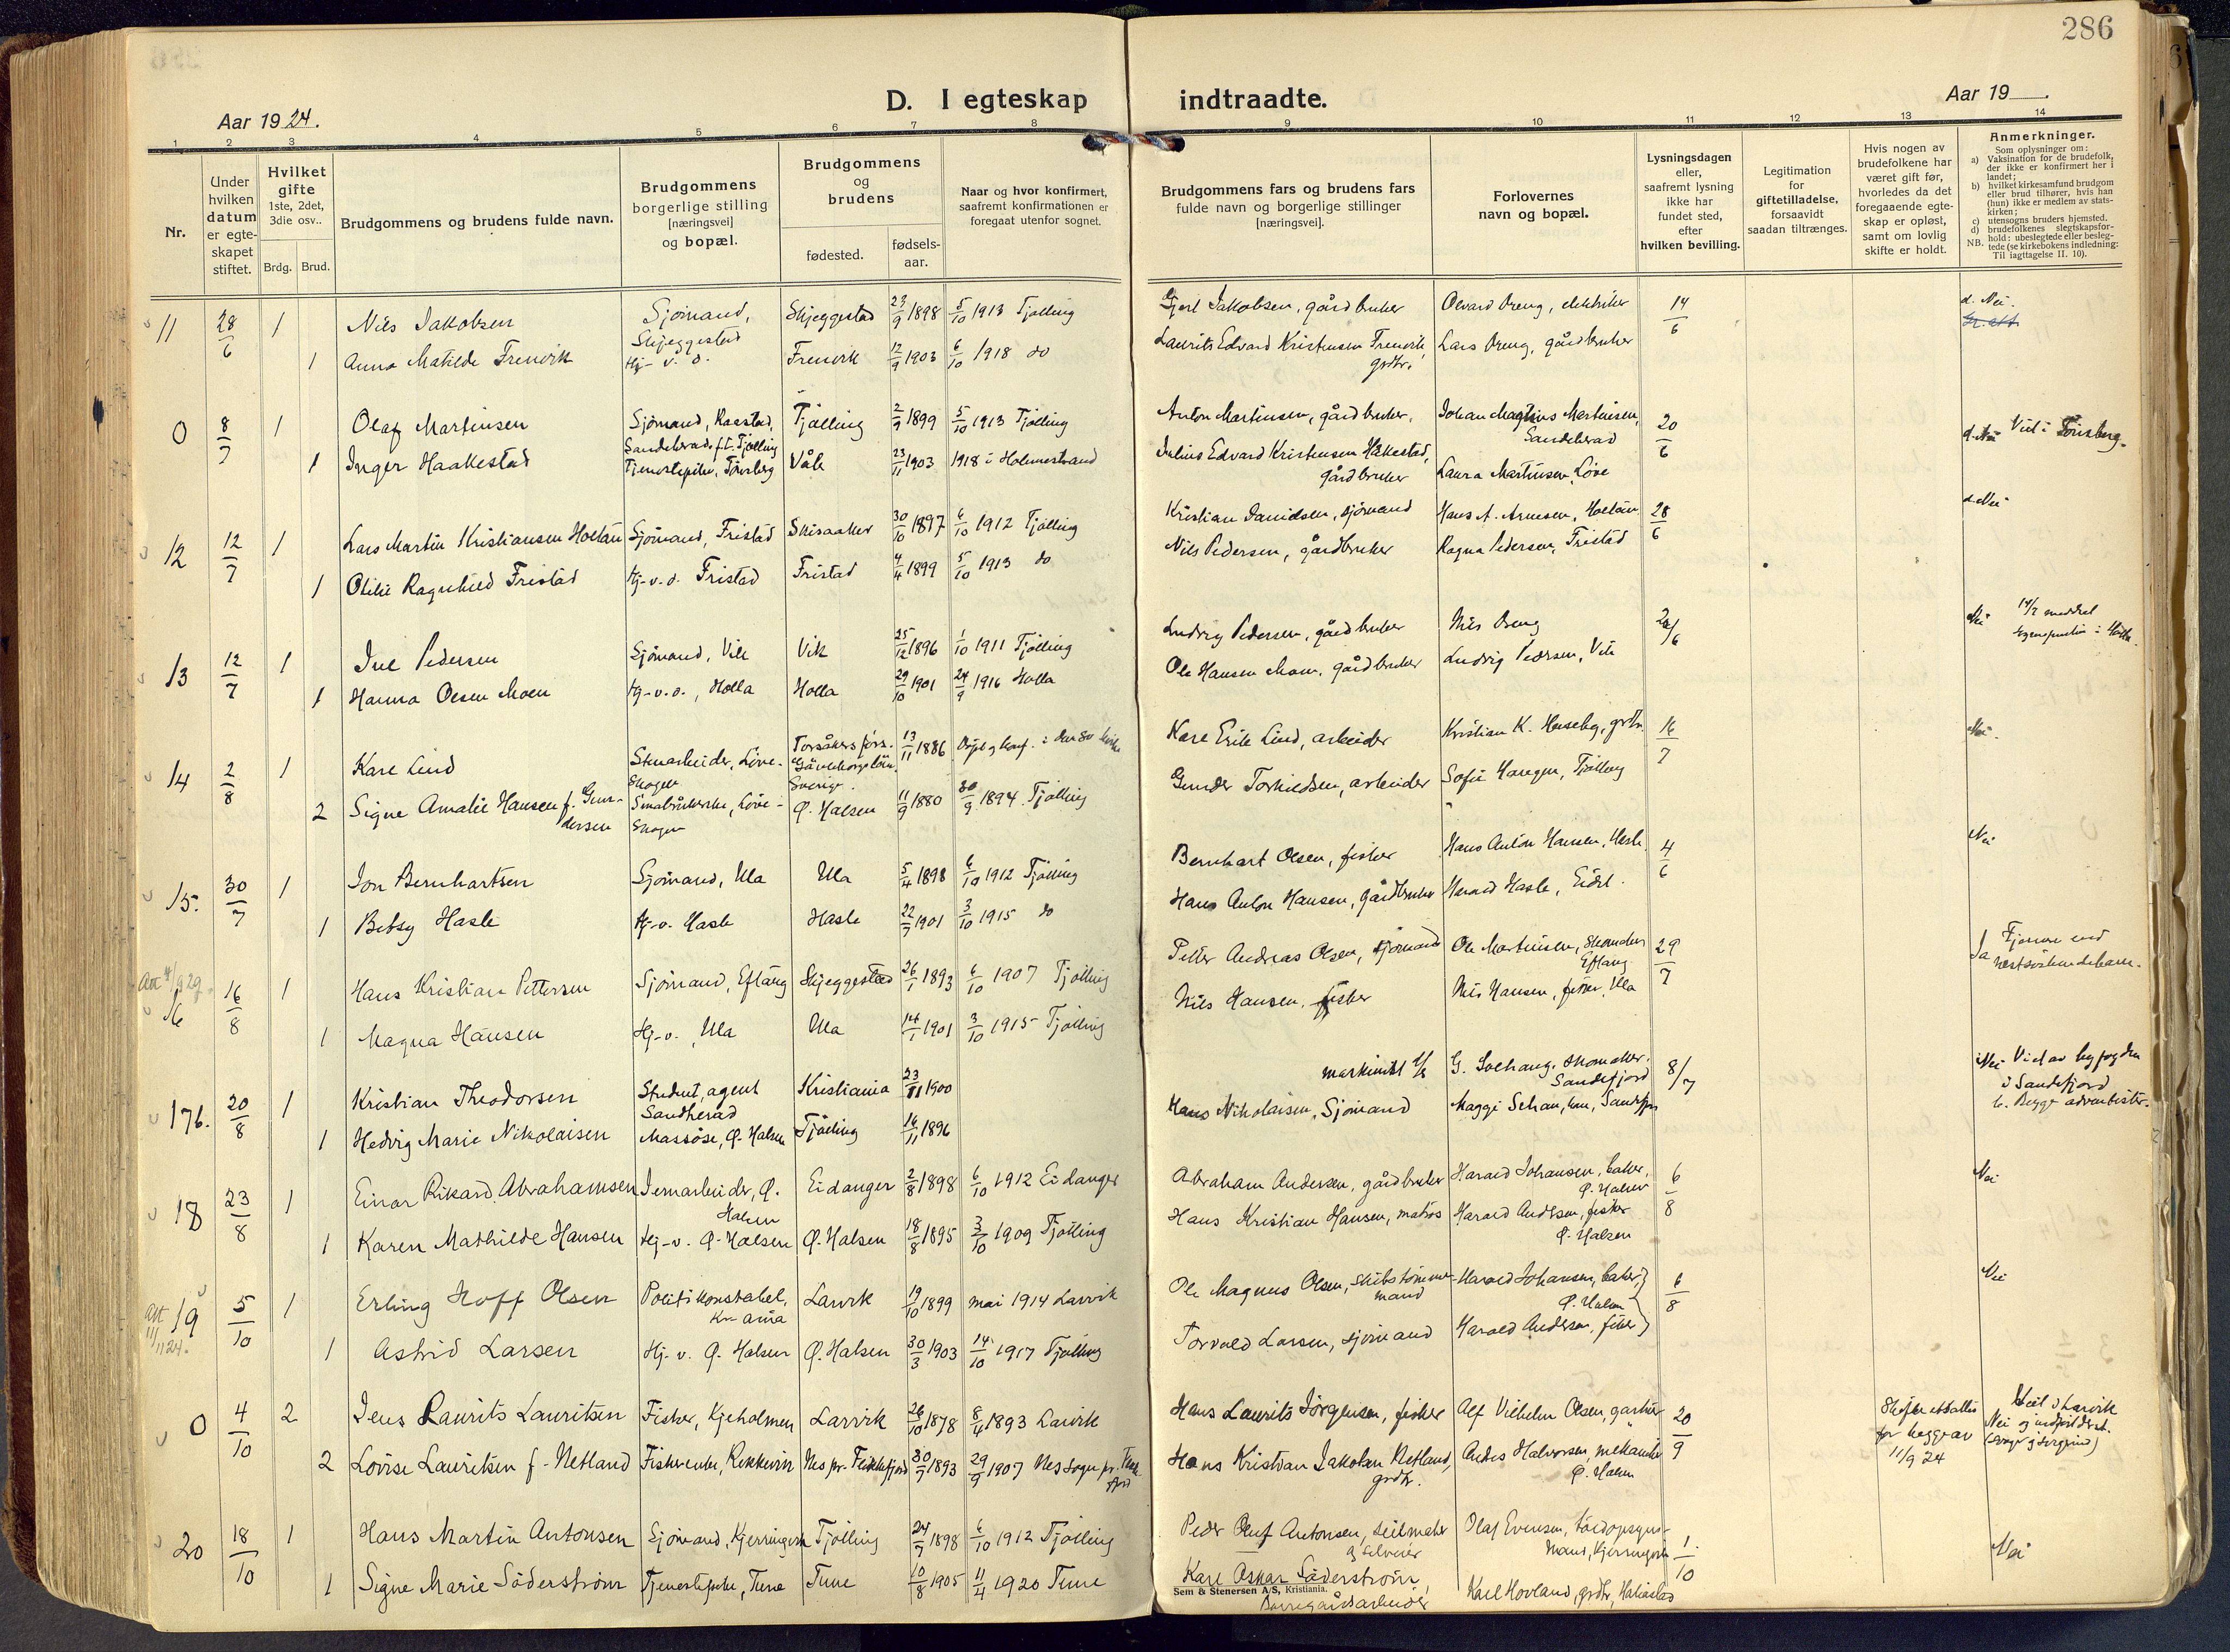 286
Aar 1924.
D. I egteskap indtraadte.
Aar 19
1 2 3 4 5 6 7 8 9 10 11 12 13 14
Nr.
Under hvilken datum er egteskapet stiftet.
Hvilket gifte 1ste, 2det, 3die osv..
Brdg. Brud.
Brudgommens og brudens fulde navn.
Brudgommens borgerlige stilling [næringsvei] og bopæl.
Brudgommens og brudens
fødested. fødsels-aar.
Naar og hvor konfirmert, saafremt konfirmationen er foregaat utenfor sognet.
Brudgommens fars og brudens fars fulde navn og borgerlige stillinger [næringsvei].
Forlovernes navn og bopæl.
Lysningsdagen eller, saafremt lysning ikke har fundet sted, efter hvilken bevilling.
Legitimation for giftetilladelse, forsaavidt saadan tiltrænges.
Hvis nogen av brudefolkene har været gift før, hvorledes da det foregaaende egteskap er opløst, samt om lovlig skifte er holdt.
Anmerkninger.
Som oplysninger om:
a) Vaksination for de brudefolk, der ikke er konfirmert her i landet;
b) hvilket kirkesamfund brudgom eller brud tilhører, hvis han (hun) ikke er medlem av statskirken;
c) utensogns bruders hjemsted.
d) brudefolkenes slegtskapsforhold: ubeslegtede eller beslegtede (se kirkebokens indledning:
NB. Til iagttagelse II. 10).
11 28/6 1 Nils Jakobsen Sjömand, Skjeggestad Skjeggestad 23/9 1898 5/10 1913 Tjölling Gjert Jakobsen, gårdbruker Oevard Oreng, elektriker 14/6 d. Nei.
1 Anna Matilde Frenvik Hj-v. d. Frenvik 12/9 1903 6/10 1918 do Laurits Edvard Kristensen Frenvik, grdbr. Lars Oreng, gårdbruker
0 8/7 1 Olaf Martinsen Sjömand, Raastad, Sandeherad, f.t. Tjölling Tjölling 2/9 1899 5/10 1913 Tjölling Anton Martinsen, gårdbruker. Johan Magnus Martinsen, Sandeherad 20/6 d. Nei Viet i Tönsberg.
1 Inger Haakestad Tjenestepike, Tönsberg Våle 23/11 1903 1918 i Holmestrand Julius Edvard Kristensen Håkestad, gårdbruker Laura Martinsen, Löve
12 12/7 1 Lars Martin Kristiansen Holtan Sjömand, Fristad Skisaaker 30/10 1897 6/10 1912 Tjölling Kristian Danielsen, sjömand Hans A. Arnesen, Holtan 28/6 d. Nei
1 Otilie Ragnhild Fristad Hj-v. d. Fristad Fristad 4/4 1899 5/10 1913 do Nils Pedersen, gårdbruker Ragna Pedersen, Fristad
13 12/7 1 Iver Pedersen Sjömand, Vik Vik 25/12 1896 1/10 1911 Tjölling Ludvig Pedersen, gårdbruker Nils Oreng 24/6 Nei
1 Hanna Olsen Moen Hj-v. d., Holla Holla 29/10 1901 24/9 1916 Holla Ole Hansen Moen, gårdbruker Ludvig Pedersen, Vik
14 2/8 1 Kare Lind Stenarbeider, Löveskogen Torsåkers förs. Gävleborgs län, Sverige. 13/11 1886 Kare Erik Lind, arbeider Kristian K. Huseby, grdbr. 16/7 Nei.
2 Signe Amalie Hansen f. Gundersen Småbrukerske, Löveskogen Ö. Halsen 11/9 1880 30/9 1894 Tjölling Gunder Torkildsen, arbeider Sofie Haregen, Tjölling
15. 30/7 1 Jon Bernhartsen Sjömand, Ula Ula 5/4 1898 6/10 1912 Tjölling Bernhart Olsen, fisker Hans Anton Hansen, Hasle 4/6 Nei
1 Betsy Hasle Hj-v. Hasle Hasle 22/7 1901 3/10 1915 do Hans Anton Hansen, gårdbruker Harald Hasle, Eidet.
Att 4/9 29.
16 16/8 1 Hans Kristian Pettersen Sjömand, Eftang Skjeggestad 26/1 1893 6/10 1907 Tjölling Petter Andreas Olsen, sjömand Ole Martinsen, Eftang 29/7 Ja Fjernere end næstsöskendebarn.
1 Magna Hansen Hj-v., Ula Ula 14/1 1901 3/10 1915 Tjölling Nils Hansen, fisker Nils Hansen, fisker, Ula
176. 20/8 1 Kristian Theodorsen Student, agent Sandherad Kristiania 23/11 1900 maskinist G. Solhaug, skomaker. Sandefjord 8/7 Nei Viet av byfogden i Sandefjord b. Begge adventister.
1 Hedvig Marie Nikolaisen Massöse, Ö. Halsen Tjölling 14/11 1896 Hans Nikolaisen, Sjömand Maggi Schau, Sandefjord
18 23/8 1 Einar Rikard Abrahamsen Jernarbeider, Ö. Halsen Eidanger 2/8 1898 6/10 1912 Eidanger Abraham Andersen, gårdbruker Harald Johansen, baker, Ö. Halsen 6/8 Nei
1 Karen Mathilde Hansen Hj-v. Ö. Halsen Ö. Halsen 18/8 1895 3/10 1909 Tjölling Hans Kristian Hansen, matros Harald Andersen, fisker Ö. Halsen
Att 11/11 24. 19 5/10 1 Erling Hoff Olsen Politikonstabel, Kr.ania Larvik 19/10 1899 mai 1914 Larvik Ole Magnus Olsen, skibstömmermand Harald Johansen, baker, Ö. Halsen 6/8 Nei
1 Astrid Larsen Hj. v. Ö. Halsen Ö. Halsen 30/3 1903 14/10 1917 Tjölling Torvald Larsen, sjömand Harald Andersen, fisker
0 4/10 2 Jens Laurits Lauritsen Fisker, Kjeholmen Larvik 26/10 1878 8/4 1893 Larvik Hans Laurits Jörgensen, fisker Alf Vilhelm Olsen, gartner 20/9 Skifteattester for begge av 11/9 24 Viet i Larvik Nei
2 Lovise Lauritsen f. Netland Fiskerenke, Rekkevik Nes pr. Flekkefjord 30/7 1893 29/9 1907 Nes sogn pr. Flekkefjord Hans Kristian Jakobsen Netland, grdbr. Anders Halvorsen, mekaniker Ö. Halsen
20 18/10 1 Hans Martin Antonsen Sjömand, Kjerringvik Tjölling 24/7 1898 6/10 1912 Tjölling Peder Oluf Antonsen, seilmaker og selveier Olaf Evensen, Kjerringvik 1/10 Nei
1 Signe Marie Söderström Tjenestepike, Tune Tune 10/8 1905 11/4 1920 Tune Karl Oskar Söderström, Borregårdsarbeider Karl Hovland, grdbr, Haliastad
Sem & Stenersen A/S, Kristiania.